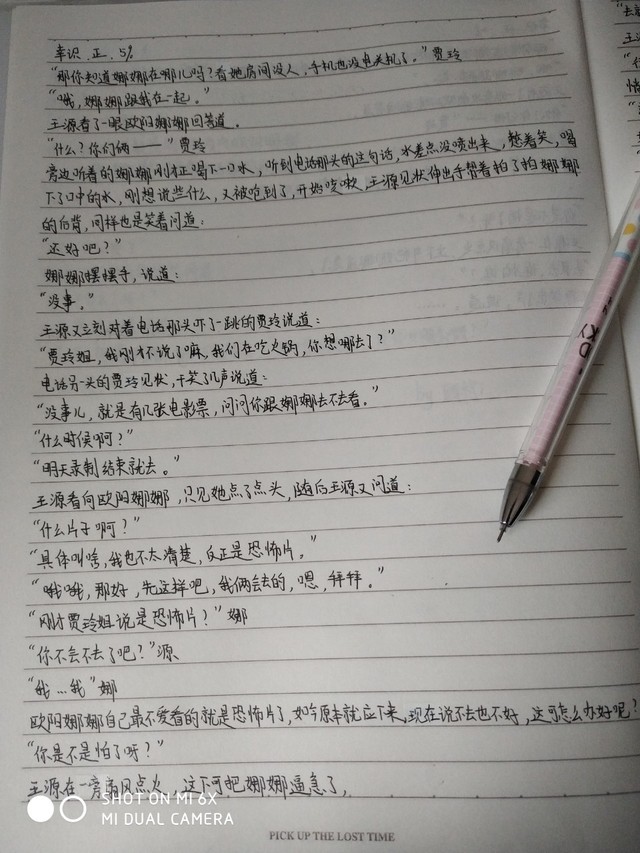 幸识.正.5%
“那你知道娜娜在哪儿吗?看她房间没人,手机也没电关机了。”贾玲
“哦,娜娜跟我在一起。”
王源看了一眼欧阳娜娜回答道。
“什么?你们俩——”贾玲
旁边听着的娜娜刚才正喝下一口水,听到电话那头的这句话,水差点没喷出来,憋着笑,咽
下了口中的水,刚想说些什么,又被呛到了,开始咳嗽,王源见状伸出手帮着拍了拍娜娜
的后背,同样也是笑着问道:
“还好吧?”
娜娜摆摆手,说道:
“没事。”
王源又立刻对着电话那头吓了一跳的贾玲说道:
“贾玲姐,我刚才不说了嘛,我们在吃火锅,你想哪去了?”
电话另一头的贾玲见状,干笑了几声说道:
“没事儿,就是有几张电影票,问问你跟娜娜去不去看。”
“什么时候啊?”
“明天录制结束就去。”
王源看向欧阳娜娜,只见她点了点头,随后王源又问道:
“什么片子啊?”
“具体叫啥,我也不太清楚,反正是恐怖片。”
“哦哦,那好,先这样吧,我俩会去的,嗯,拜拜。”
“刚才贾玲姐说是恐怖片?”娜
“你不会不去了吧?”源
“我…我”娜
欧阳娜娜自己最不爱看的就是恐怖片了,如今原本就应下来,现在说不去也不好,这可怎么办好呢?
“你是不是怕了呀?”
王源在一旁扇风点火,这下可把娜娜逼急了,
SHOT ON MI 6X
MI DUAL CAMERA
PICK UP THE LOST TIME